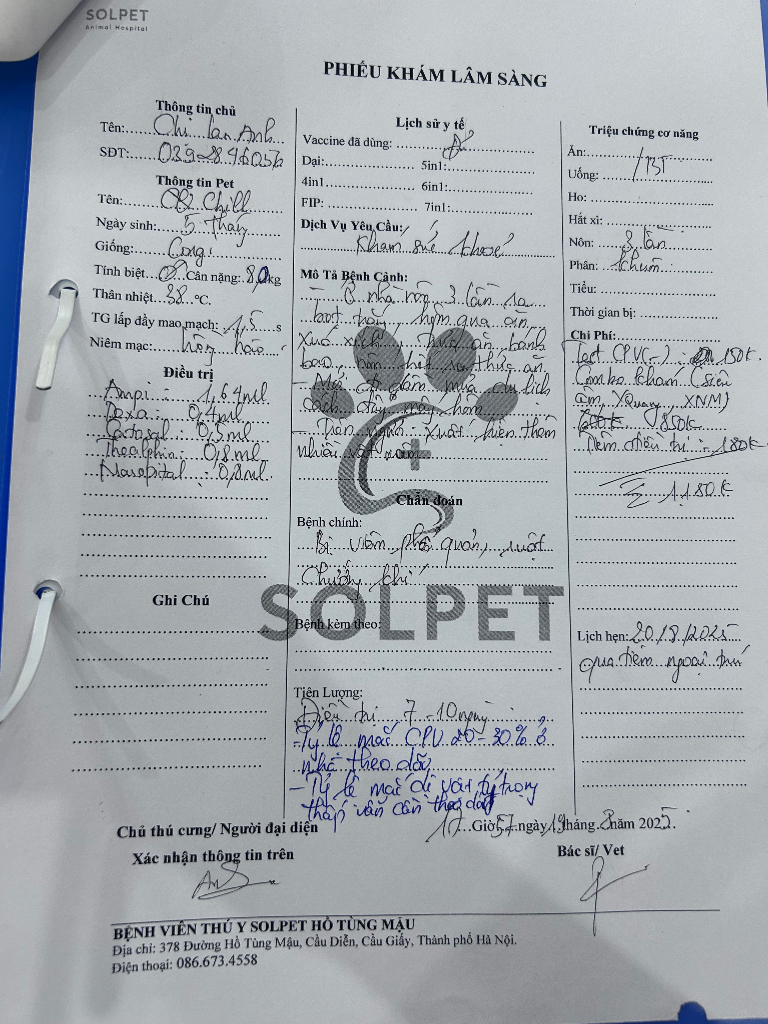 SOLPET
Animal Hospital
PHIẾU KHÁM LÂM SÀNG
Thông tin chủ
Tên: Chị Lan Anh
SĐT:
Thông tin Pet
Tên: Chill
Ngày sinh: 5 Tháng
Giống: Corgi
Tính biệt Cân nặng: kg
Thân nhiệt 38 °C.
TG lấp đầy mao mạch: 1,5 s
Niêm mạc: hồng hào
Điều trị
Ampi: 1,64ml
Dexa: 0,4ml
Catosal: 0,5ml
: 0,8ml
Maropital: 0,8ml
Ghi Chú
Lịch sử y tế
Vaccine đã dùng:
Dại: 5in1:
4in1 6in1:
FIP: 7in1:
Dịch Vụ Yêu Cầu:
Khám sức khoẻ
Mô Tả Bệnh Cảnh:
- Ở nhà nôn 3 lần ra
bọt trắng, hôm qua ăn
xúc xích bánh
bao, nôn hết thức ăn
- du lịch
cách đây mấy hôm
- Trên người xuất hiện thêm
nhiều
Chẩn đoán
Bệnh chính:
Bị viêm phế quản, ruột
chướng khí
Bệnh kèm theo:
Tiên Lượng:
Điều trị 7-10 ngày
- Tỷ lệ mắc CPV 20-30% ở
nhà theo dõi
- Tỷ lệ mắc dị vật tỷ trọng
thấp vẫn cần theo dõi
Triệu chứng cơ năng
Ăn:
Uống: BT
Ho:
Hắt xì:
Nôn: 3 lần
Phân: khuôn
Tiểu:
Thời gian bị:
Chi Phí:
Test CPV(-): 150k
Combo khám (siêu
âm, XQuang, XNM)
850k
Tiêm điều trị: 180k
Σ 1180k
Lịch hẹn: 20/8/2025
qua tiêm ngoại trú
SOLPET
Chủ thú cưng/ Người đại diện
17 Giờ 57 ngày 19 tháng 8 năm 2025.
Xác nhận thông tin trên
Bác sĩ/ Vet
BỆNH VIỆN THÚ Y SOLPET HỒ TÙNG MẬU
Địa chỉ: 378 Đường Hồ Tùng Mậu, Cầu Diễn, Cầu Giấy, Thành phố Hà Nội.
Điện thoại: 086.673.4558